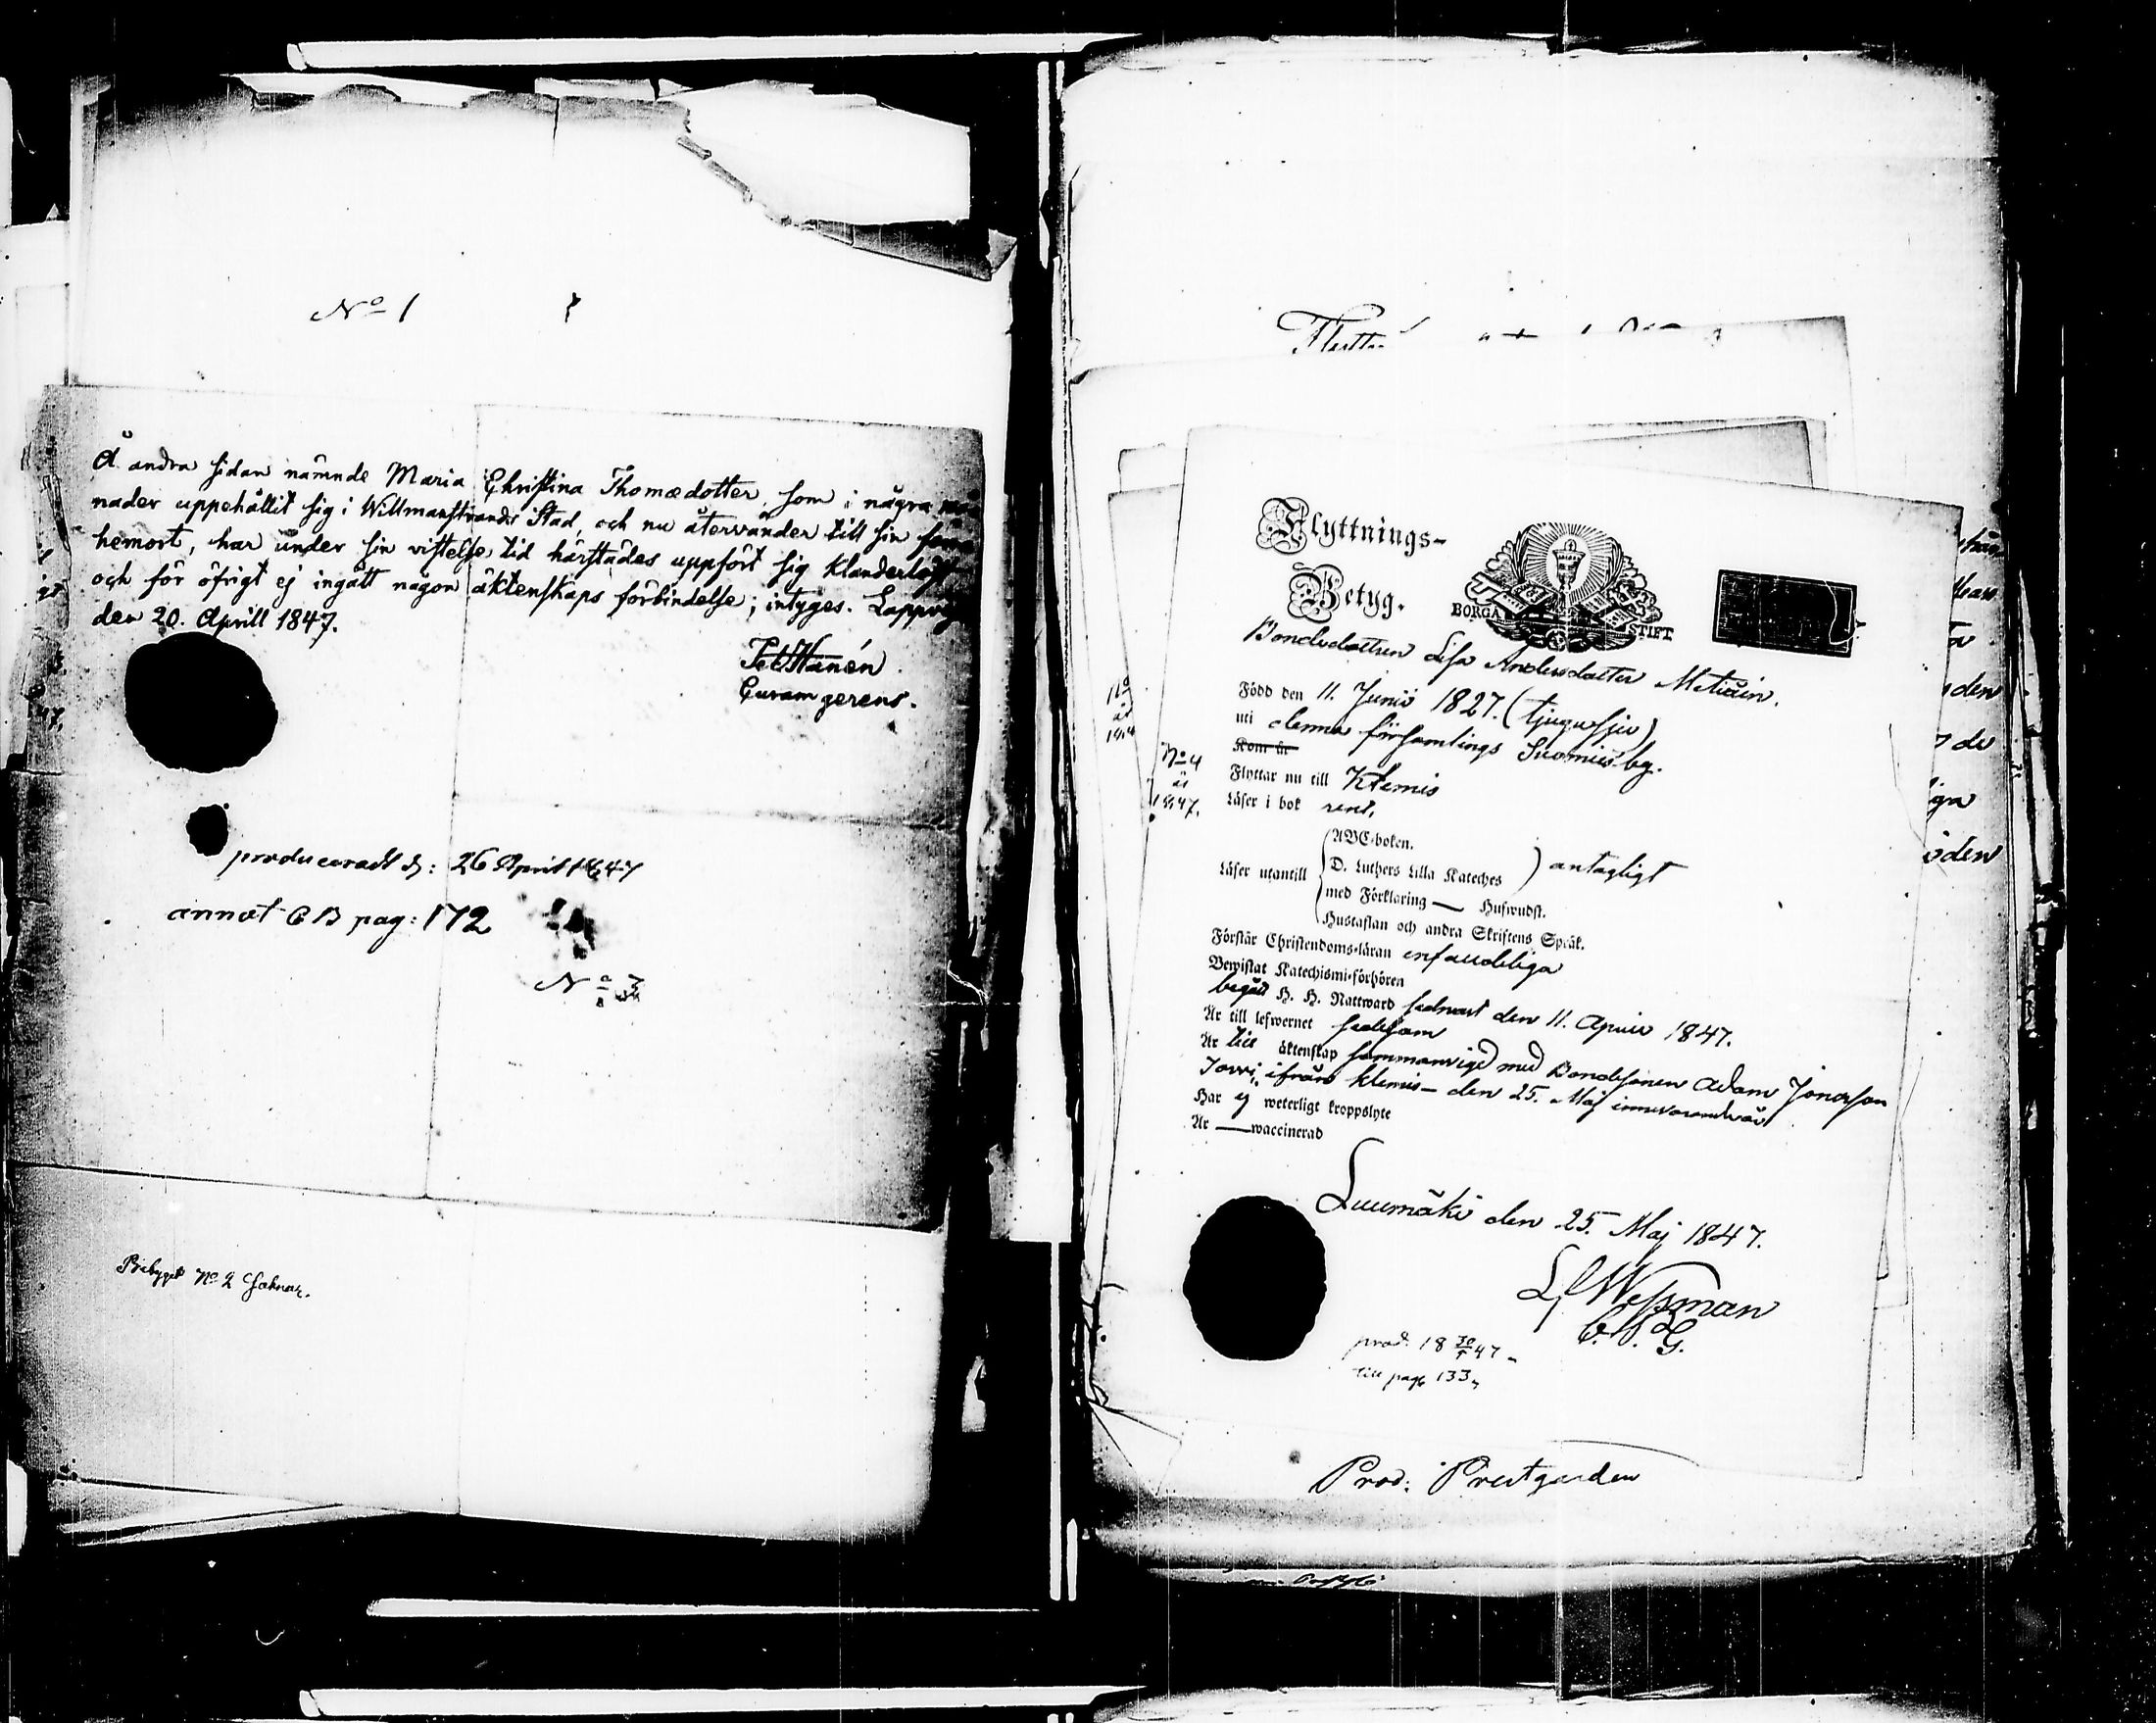 No 1
Å andra sidan nämnde Maria Christina Thomædotter, som i några
nader uppehållit sig i Willmanstrands Stad, och nu återvänder till sin
hemort, har under sin vistelse tid härstädes uppfört sig klanderlöst
och för öfrigt ej ingått någon äktenskaps förbindelse; intyges. Lappvesi
den 20. Aprill 1847.
Curam gerens.
produceradt d: 26 April 1847
annot CB pag: 172
No 3
No 2 saknas.
Flyttnings-
Betyg.
BORGÅ STIFT
Bondedottren Lisa Andersdotter
Född den 11. Junii 1827. (tjugusju)
uti denna församlings Suomis by.
Kom år
Flyttar nu till Klemis
No 4
år
1847.
Läser i bok rent.
ABC-boken.
Läser utantill D. Luthers Lilla Kateches antagligt
med Förklaring — Husfrudst.
Hustaflan och andra Skriftens Språk.
Förstår Christendoms-läran enfaldeliga
Bewistat Katechismi-förhören
begått H. H. Nattward sednast den 11. April 1847.
Är till lefwernet sedesam
Är till äktenskap sammanvigd med Bondesonen Adam Jonasson
ifrån Klemis – den 25. Maj innevarande år
Har ej weterligt kroppslyte
Är — waccinerad
Luumäki den 25. Maj 1847.
Wessman
prod. 18 30/5 47
till pag 133
Prod: